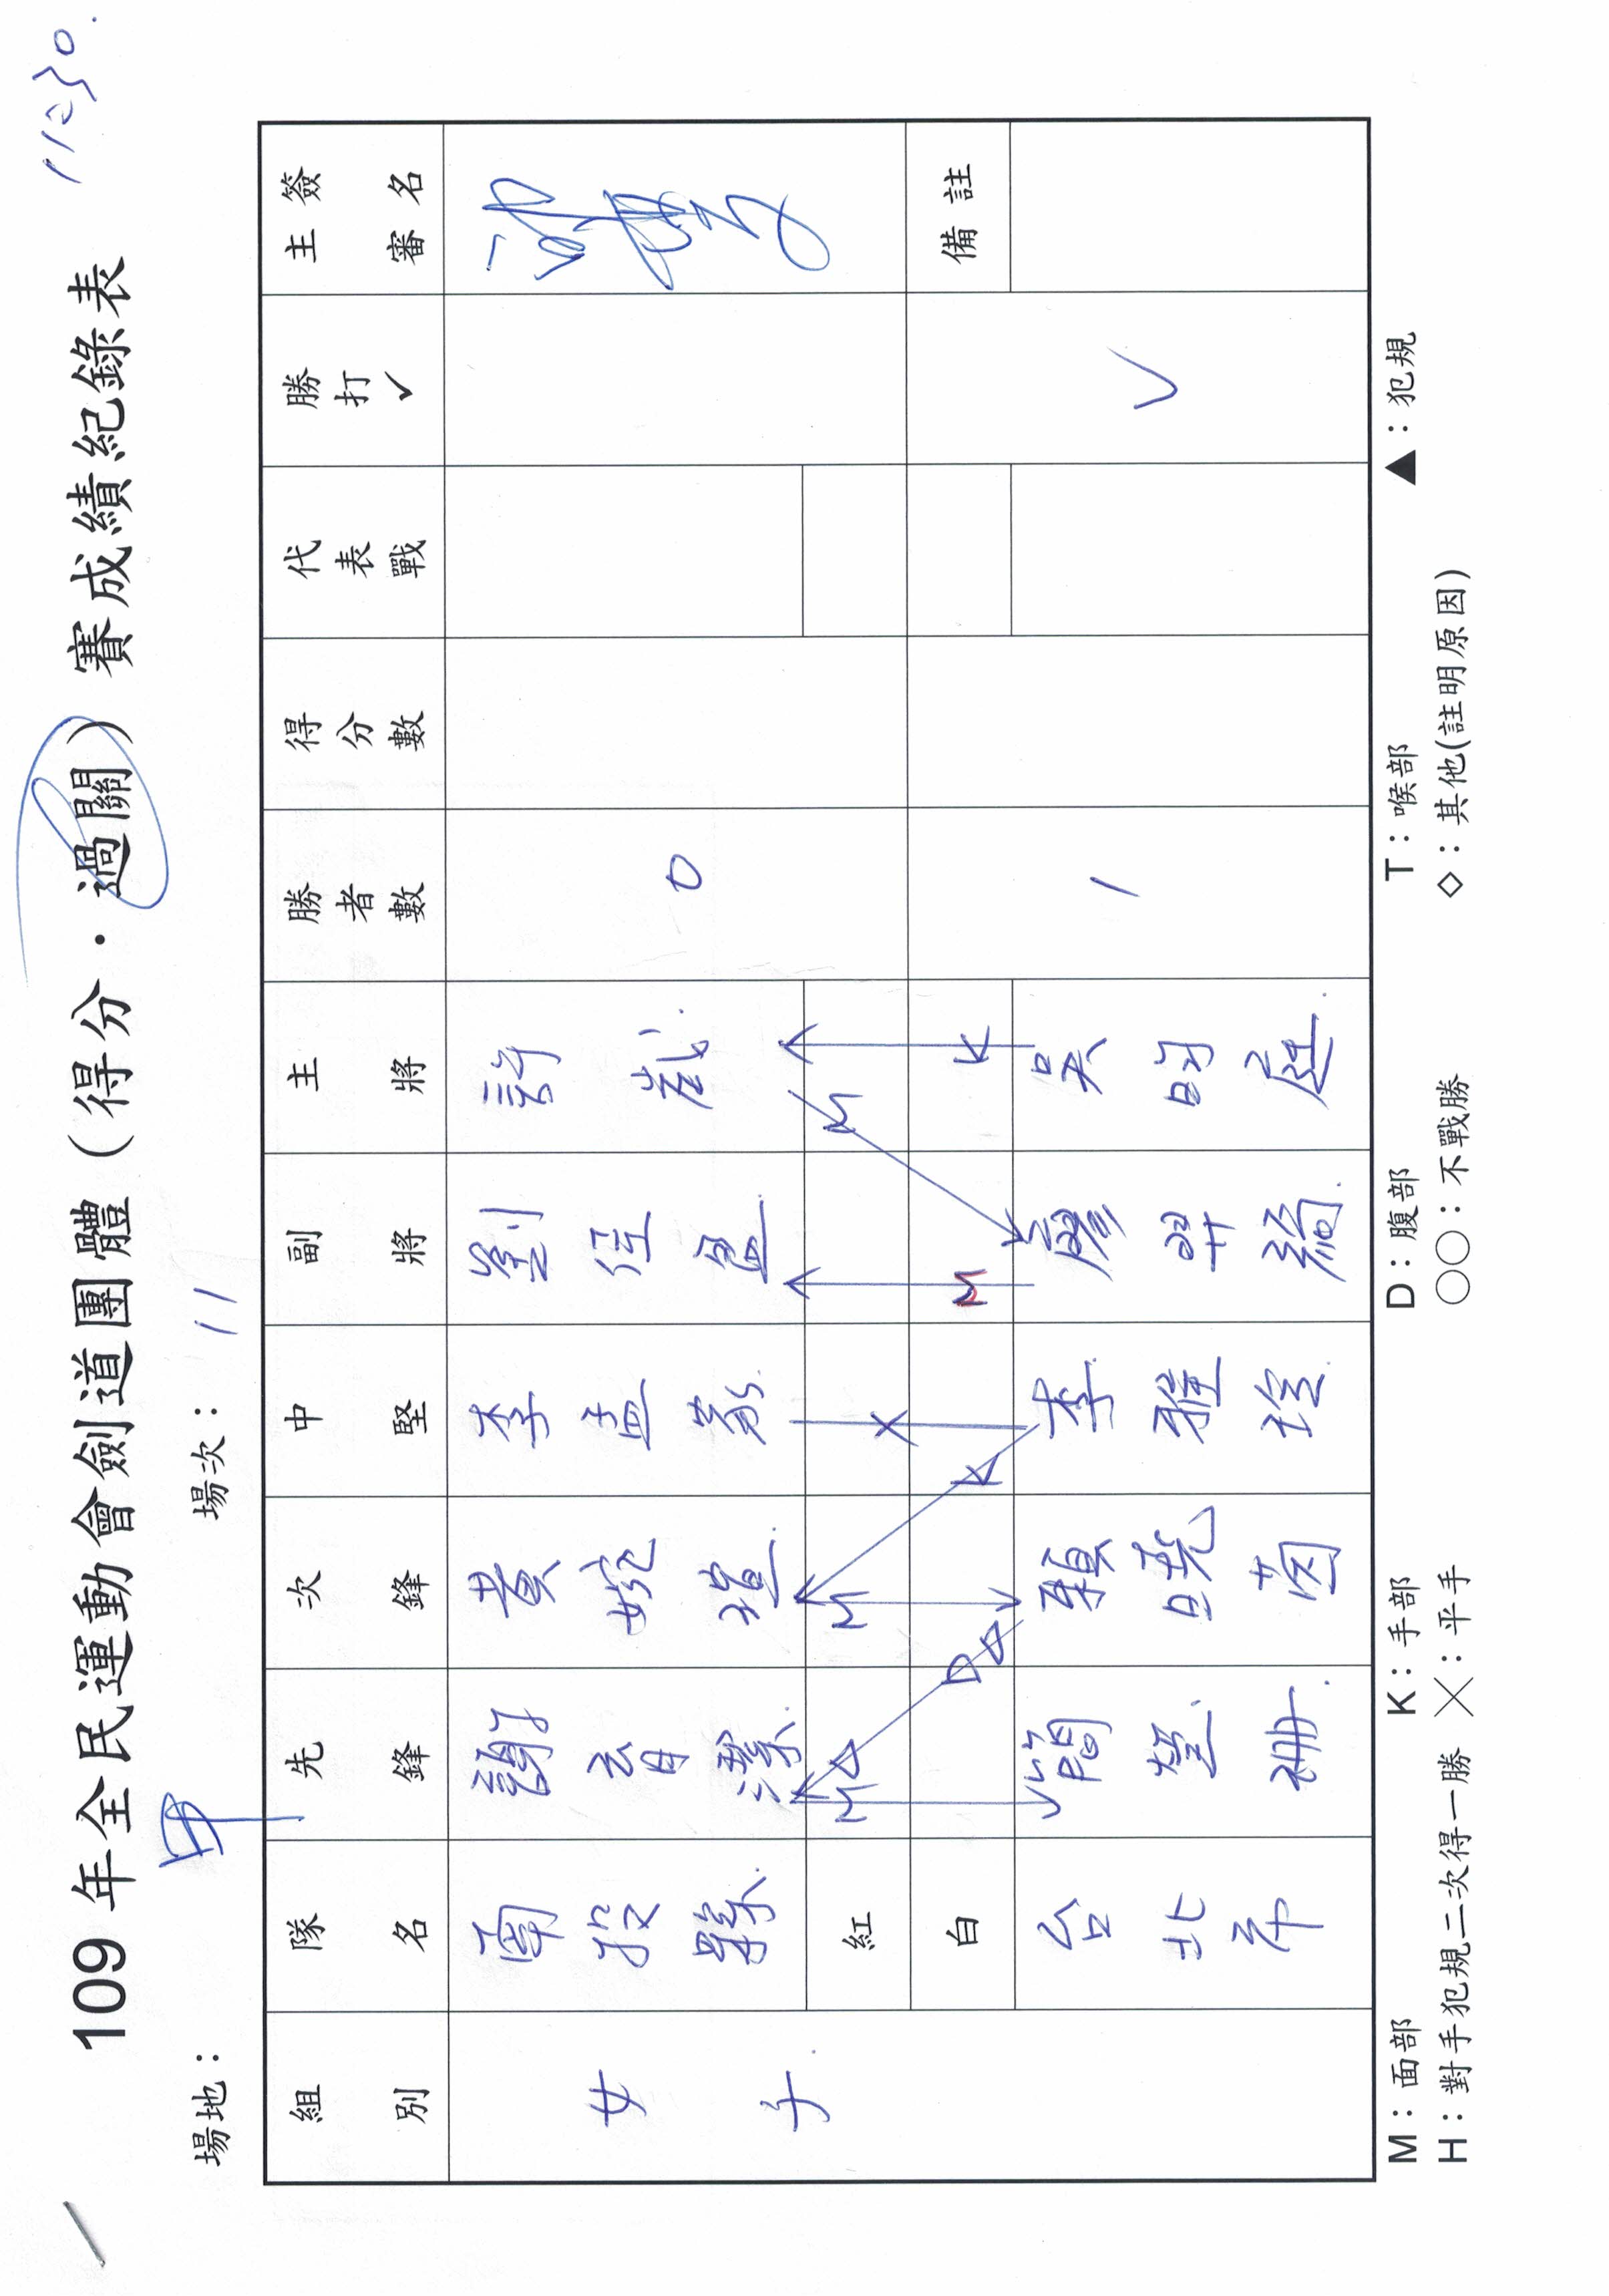 11:30.
109 年全民運動會劍道團體（得分．過關）賽成績紀錄表
場地： 甲 場次： 11
組別 隊名 先鋒 次鋒 中堅 副將 主將 勝者數 得分數 代表戰 勝打✓ 主審簽名
女子. 南投縣. 黃婉瑄. 李孟 許 0
紅 M△ M M
白 D△ K X M K 備註
台北市 簡 顏曉茵 李雅玲. 廖 吳昀庭. 1 V
M：面部 K：手部 D：腹部 T：喉部 ▲：犯規
H：對手犯規二次得一勝 ╳：平手 ○○：不戰勝 ◇：其他(註明原因)